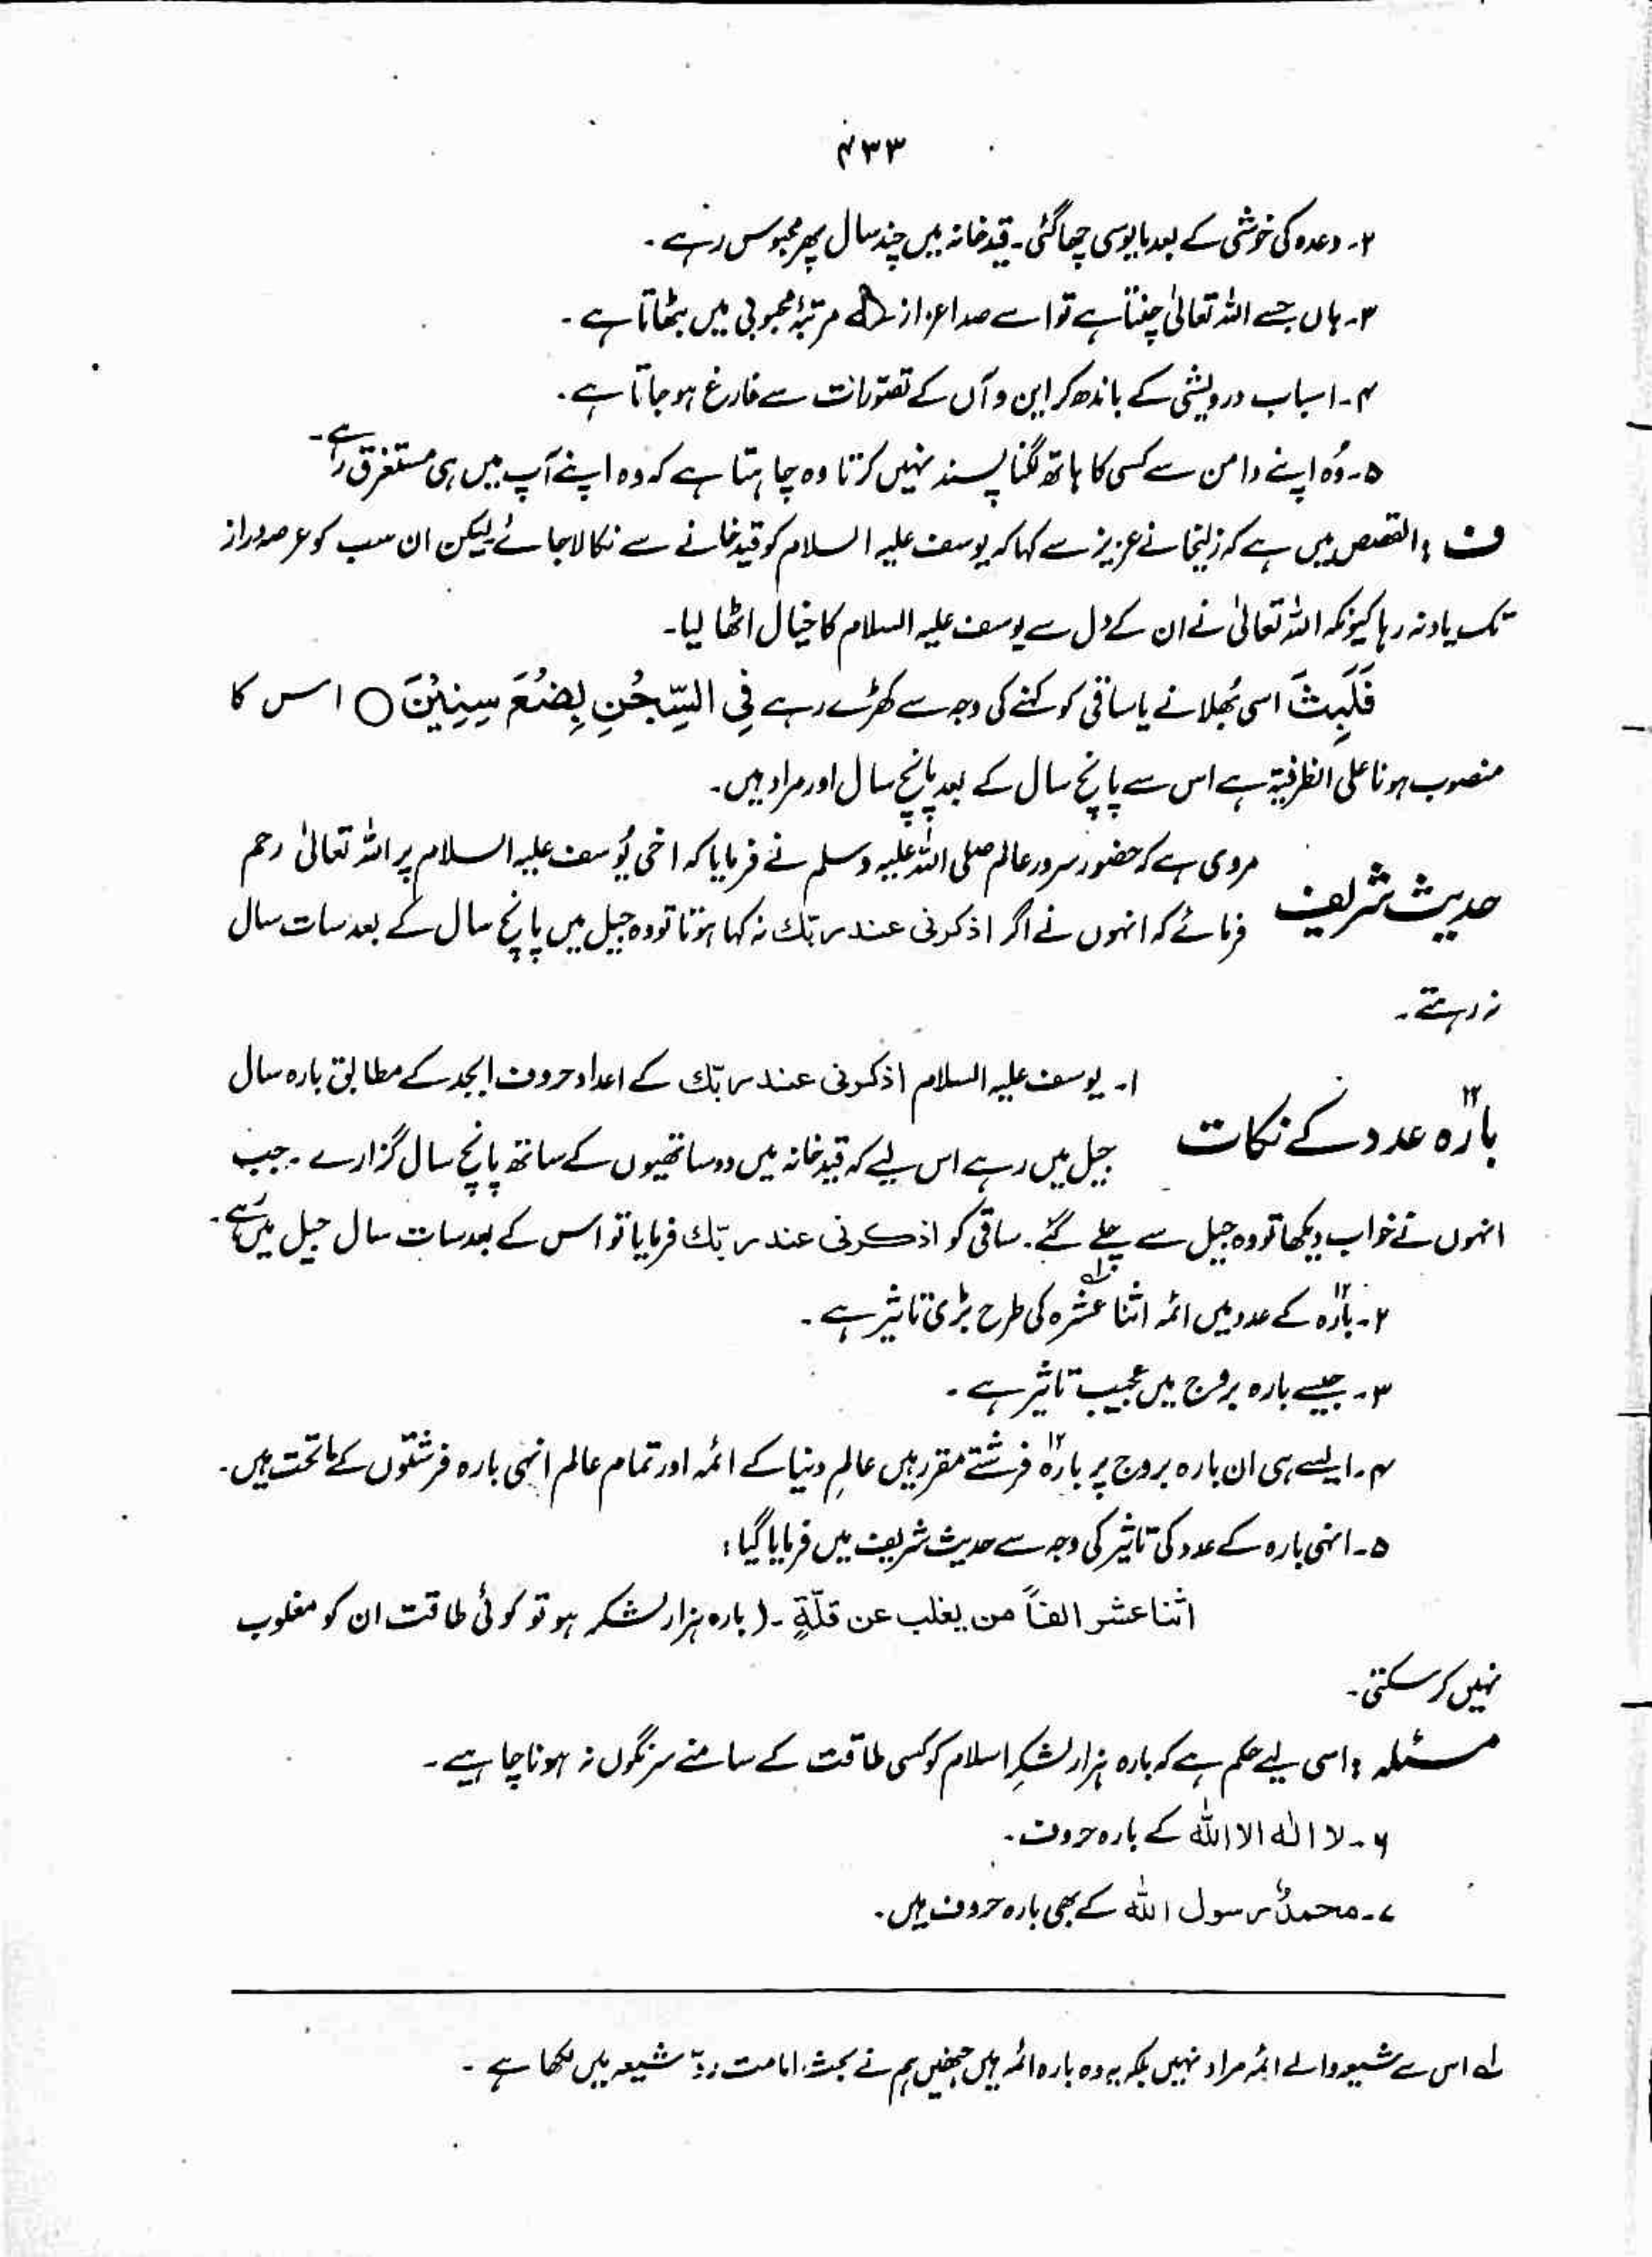 ۴۳۳
۲۔ وعدہ کی خوشی کے بعد مایوسی چھا گئی۔ قید خانہ میں چند سال پھر محبوس رہے۔
۳۔ ہاں جسے اللہ تعالیٰ چنتا ہے تو اسے صد اعزاز مرتبۂ محبوبی میں بٹھاتا ہے۔
۴۔ اسباب درویشی کے باندھ کر این و آں کے تصوّرات سے فارغ ہو جاتا ہے۔
۵۔ وُہ اپنے دامن سے کسی کا ہاتھ لگنا پسند نہیں کرتا وہ چاہتا ہے کہ وہ اپنے آپ میں ہی مستغرق رہے۔
ف : القصص میں ہے کہ زلیخا نے عزیز سے کہا کہ یوسف علیہ السلام کو قید خانے سے نکالا جائے لیکن ان سب کو عرصہ دراز
تک یاد نہ رہا کیونکہ اللہ تعالیٰ نے ان کے دل سے یوسف علیہ السلام کا خیال اٹھا لیا۔
فَلَبِثَ اسی بُھلانے یا ساقی کو کہنے کی وجہ سے ٹھہرے رہے فِی السِّجْنِ بِضْعَ سِنِیْنَ ○ اس کا
منصوب ہونا علی الظرفیۃ ہے اس سے پانچ سال کے بعد پانچ سال اور مراد ہیں۔
حدیث شریف مروی ہے کہ حضور سرور عالم صلی اللہ علیہ وسلم نے فرمایا کہ اخی یُوسف علیہ السلام پر اللہ تعالیٰ رحم
فرمائے کہ انہوں نے اگر اذکرنی عند ربّک نہ کہا ہوتا تو وہ جیل میں پانچ سال کے بعد سات سال
نہ رہتے۔
بارہ۱۲ عدد کے نکات ۱۔ یوسف علیہ السلام اذکرنی عند ربّک کے اعداد حروف ابجد کے مطابق بارہ سال
جیل میں رہے اس لیے کہ قید خانہ میں دو ساتھیوں کے ساتھ پانچ سال گزارے۔ جب
انہوں نے خواب دیکھا تو وہ جیل سے چلے گئے۔ ساقی کو اذکرنی عند ربّک فرمایا تو اس کے بعد سات سال جیل میں رہے۔
۲۔ بارہ۱۲ کے عدد میں ائمہ اثنا عشرہ لہ کی طرح بڑی تاثیر ہے۔
۳۔ جیسے بارہ بروج میں عجیب تاثیر ہے۔
۴۔ ایسے ہی ان بارہ بروج پر بارہ۱۲ فرشتے مقرر ہیں عالمِ دنیا کے ائمہ اور تمام عالم انہی بارہ فرشتوں کے ماتحت ہیں۔
۵۔ انہی بارہ کے عدد کی تاثیر کی وجہ سے حدیث شریف میں فرمایا گیا :
اثنا عشر الفاً من یغلب عن قلّةٍ۔ (بارہ ہزار لشکر ہو تو کوئی طاقت ان کو مغلوب
نہیں کر سکتی۔
مسئلہ : اسی لیے حکم ہے کہ بارہ ہزار لشکرِ اسلام کو کسی طاقت کے سامنے سرنگوں نہ ہونا چاہیے۔
۶۔ لا الٰہ الا اللہ کے بارہ حروف۔
۷۔ محمدٌ رسول اللہ کے بھی بارہ حروف ہیں۔
لہ اس سے شیعہ والے ائمہ مراد نہیں بلکہ یہ وہ بارہ ائمہ ہیں جنھیں ہم نے بحث امامت ردّ شیعہ میں لکھا ہے۔